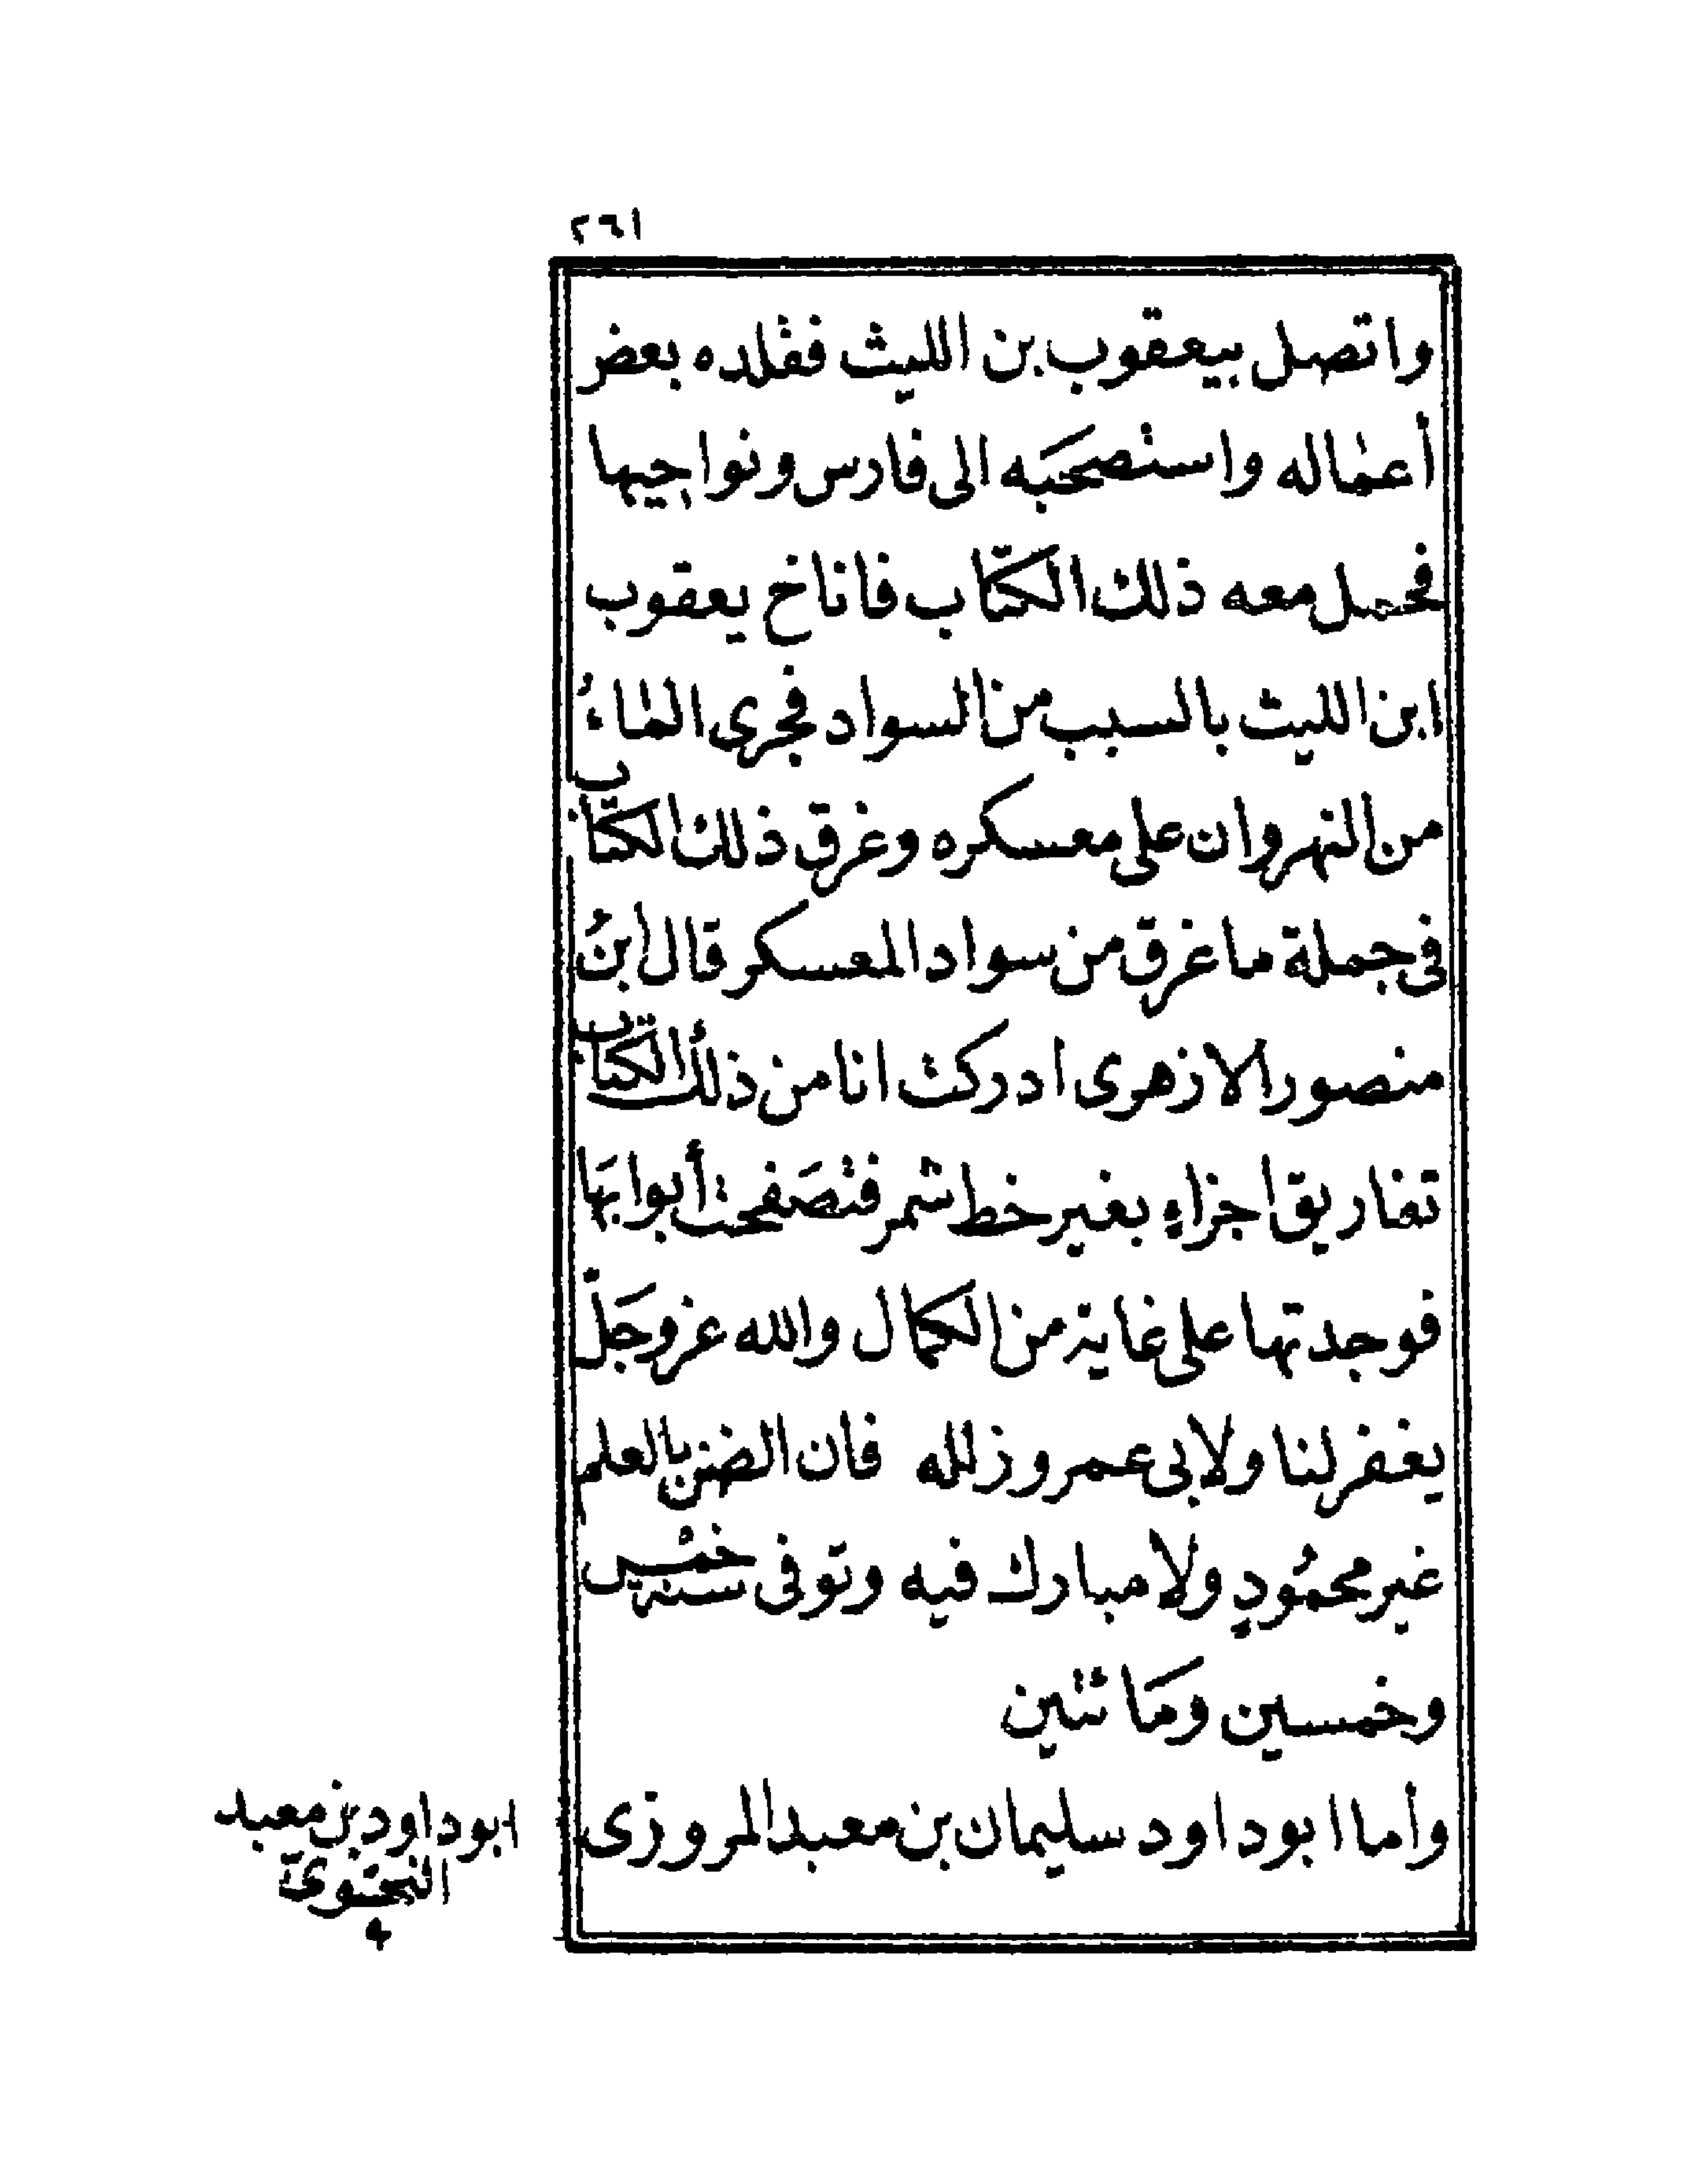 ٢٦١
واتصل بيعقوب بن الليث فقلده بعض
أعماله واستصحبَه الى فارس ونواحيها
فحمل معه ذلك الكتاب فاناخ يعقوب
ابن الليث بالسيب من السواد فجرى الماءُ
من النهروان على معسكره وغرق ذلك الكتاب
فى جملة ما غرق من سواد المعسكر قال ابنُ
منصور الازهرى ادركت انا من ذلك الكتاب
تفاريق اجزاءٍ بغير خط شمر فتصَفحت أبوابَها
فوجدتها على غاية من الكمال والله عز وجَلّ
يغفر لنا ولابى عمرو زلله فان الضن بالعلم
غير محمُودٍ ولا مبارك فيه وتوفى سنة خمس
وخمسين ومَائتين
وأما ابو داود سليمان بن معبد المروزى
ابو داود بن معبد
النحوى